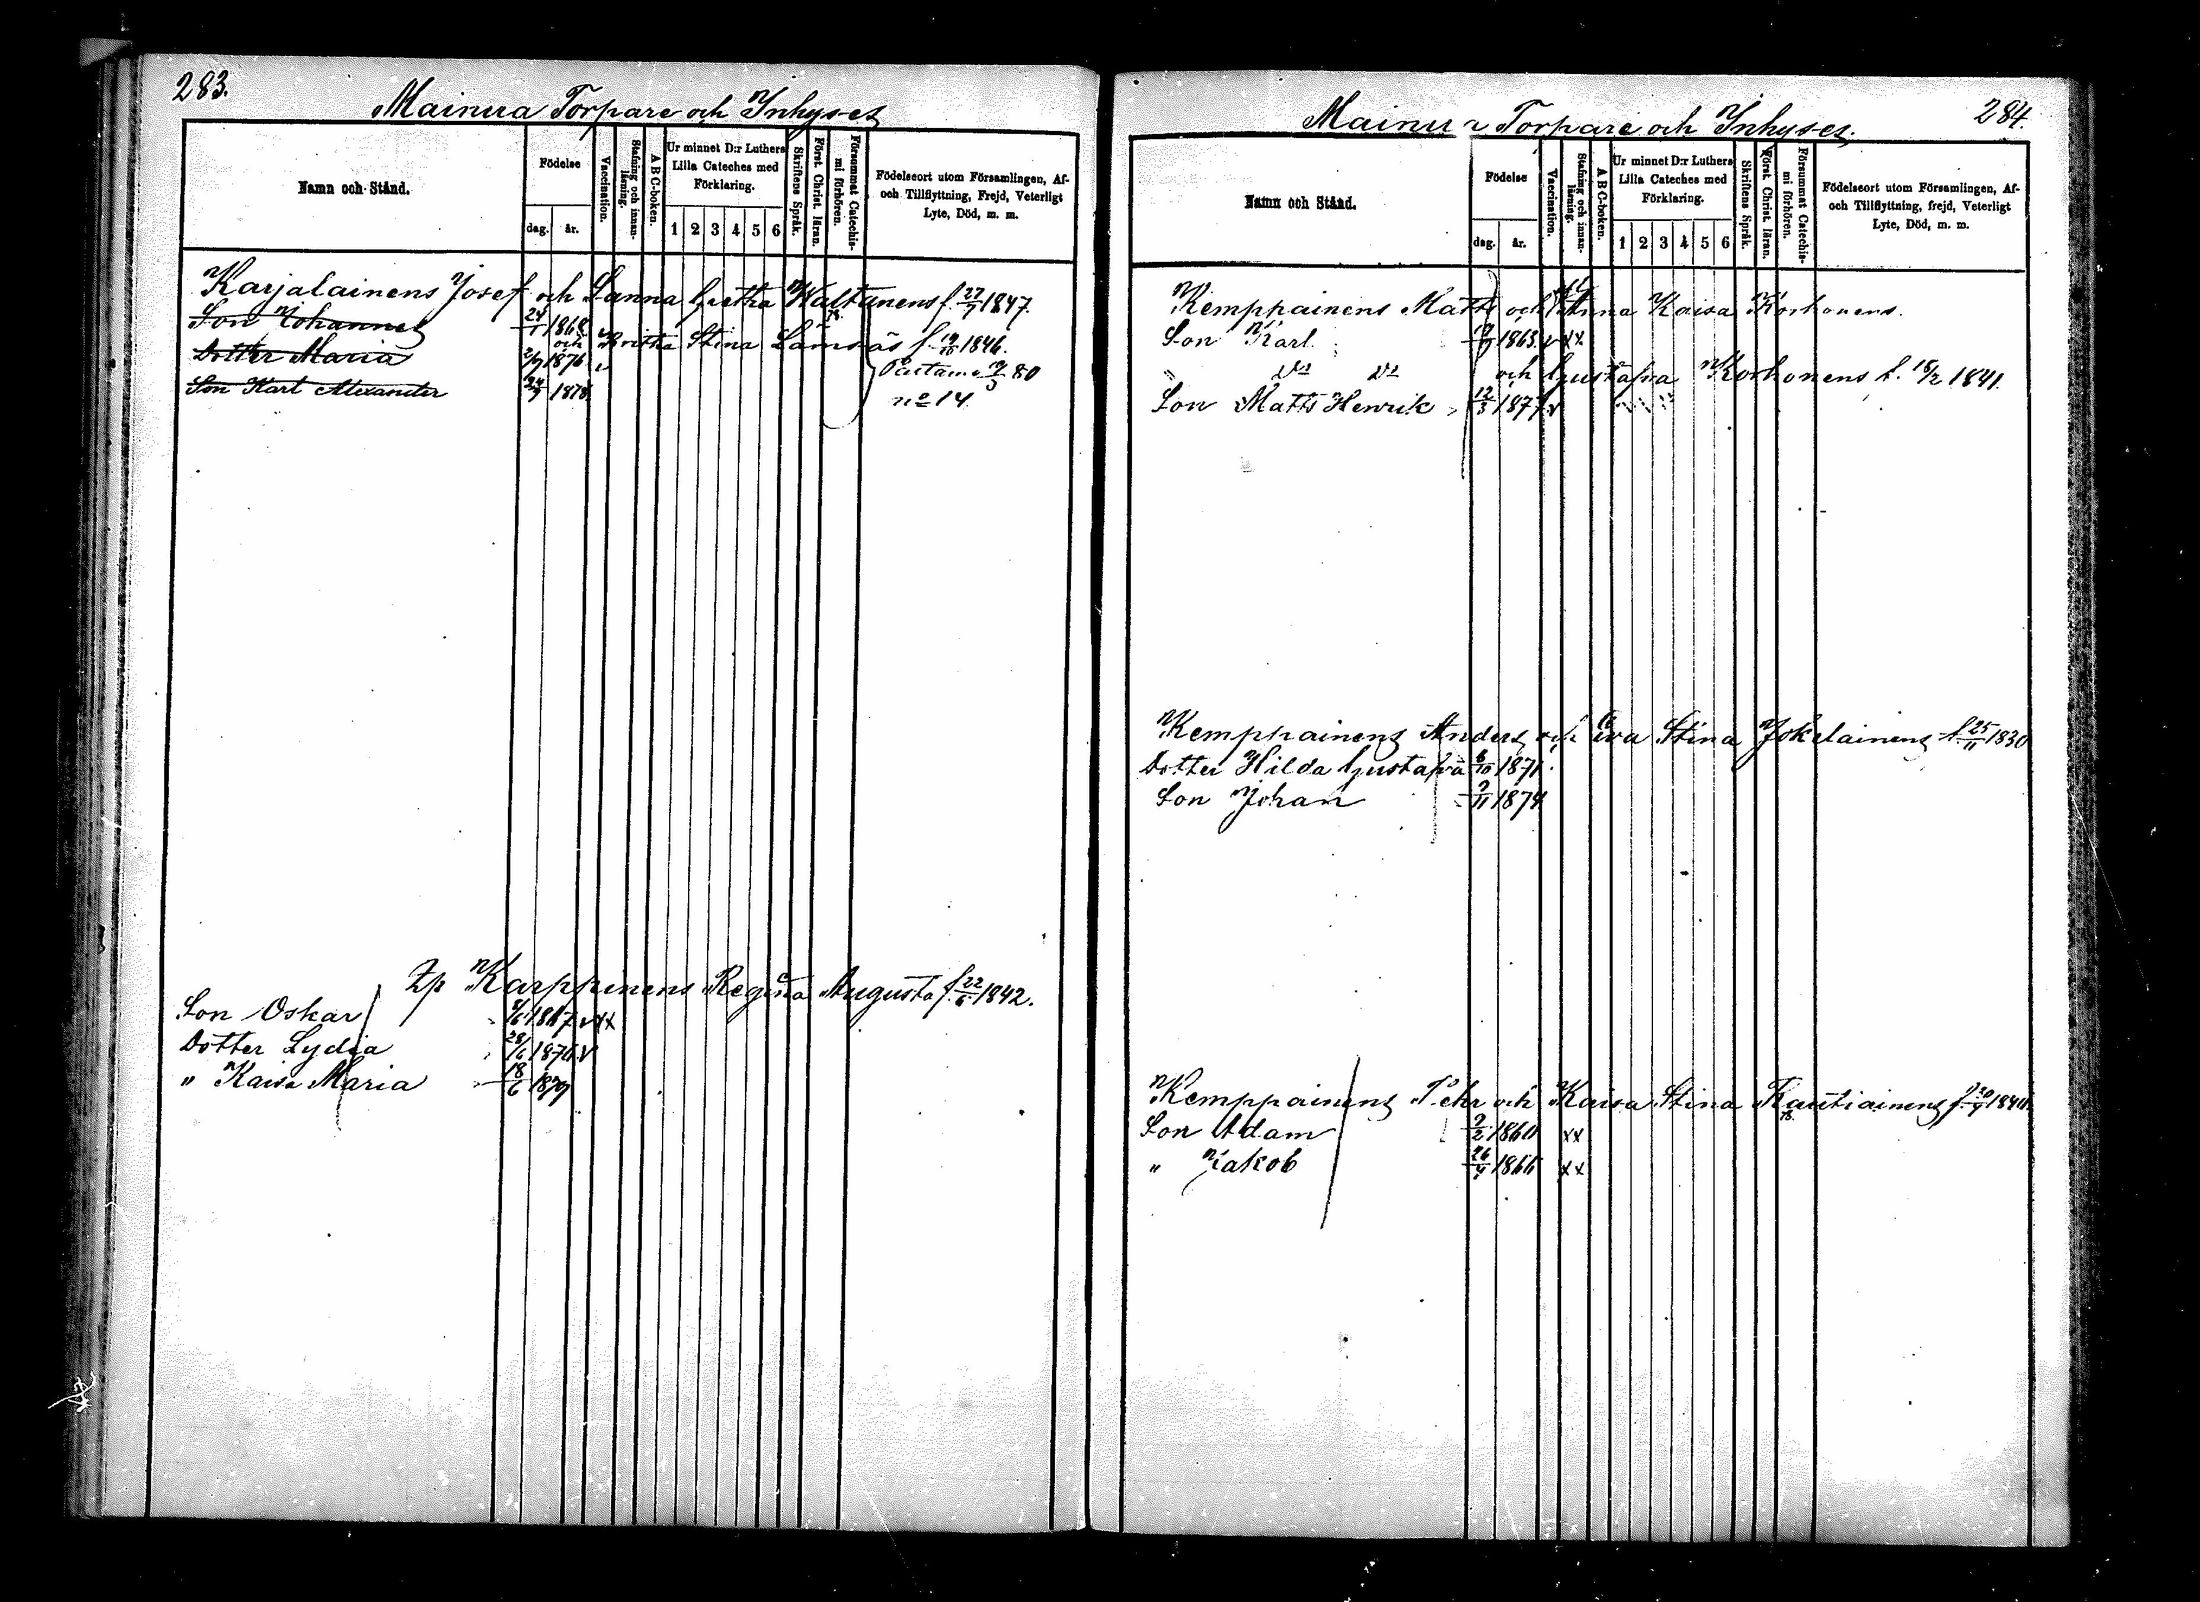 283.
Mainua Torpare och Inhyses
Namn och Stånd.
Födelse
dag. år.
Vaccination.
Stafning och innanläsning.
ABC-boken.
Ur minnet D:r Luthers Lilla Cateches med Förklaring.
1 2 3 4 5 6
Skriftens Språk.
Först. Christ. läran.
Försummat Catechismi förhören.
Födelseort utom Församlingen, Af- och Tillflyttning, Frejd, Veterligt Lyte, Död, m. m.
Karjalainens Josef och Sanna Gretha f. 27/7 1847.
Son Johannes 24/1 1868
och Stina f. 19/10 1846.
Dotter Maria 1876 v
80
Son Karl Alexander 1878
no 14
Karppinens Regina Augusta f. 22/6 1842.
Son Oskar 1867 v xx
Dotter Lydia 28/6 1876 v
" Kaisa Maria 18/6 1879
284.
Mainua Torpare och Inhyses.
Namn och Stånd.
Födelse
dag. år.
Vaccination.
Stafning och innanläsning.
ABC-boken.
Ur minnet D:r Luthers Lilla Cateches med Förklaring.
1 2 3 4 5 6
Skriftens Språk.
Först. Christ. läran.
Försummat Catechismi förhören.
Födelseort utom Församlingen, Af- och Tillflyttning, frejd, Veterligt Lyte, Död, m. m.
Kemppainens Matts och Anna Kaisa Korhonens.
Son Karl 1863 v xx
" Do Do och Gustafva Korhonens f. 18/2 1841.
Son Matts Henrik 12/3 1877 v
Kemppainens Anders och Eva Stina Jokelainens f. 25/11 1830
Dotter Hilda Gustafva 6/10 1871
Son Johan 9/11 1874
Kemppainens Pehr och Kaisa Stina Rautiainens
Son Adam 2/2 1860 xx
" Jakob 26/4 1866 xx